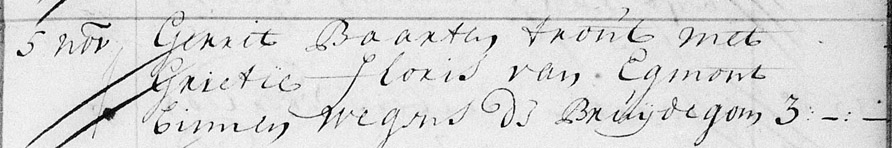 5 nov Gerrit Baarten trout met
Grietie Floris van Egmont
binnen wegens de Bruijdegom 3:–:–